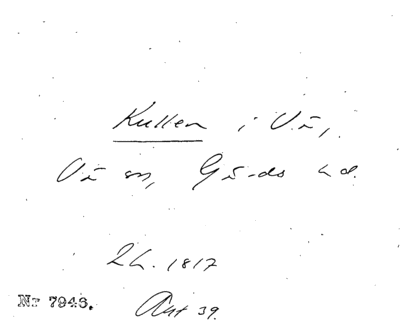 Kullen i Vä,
Vä sn, Gärds hd.
Lh. 1817
Nr 7943. Akt 39.